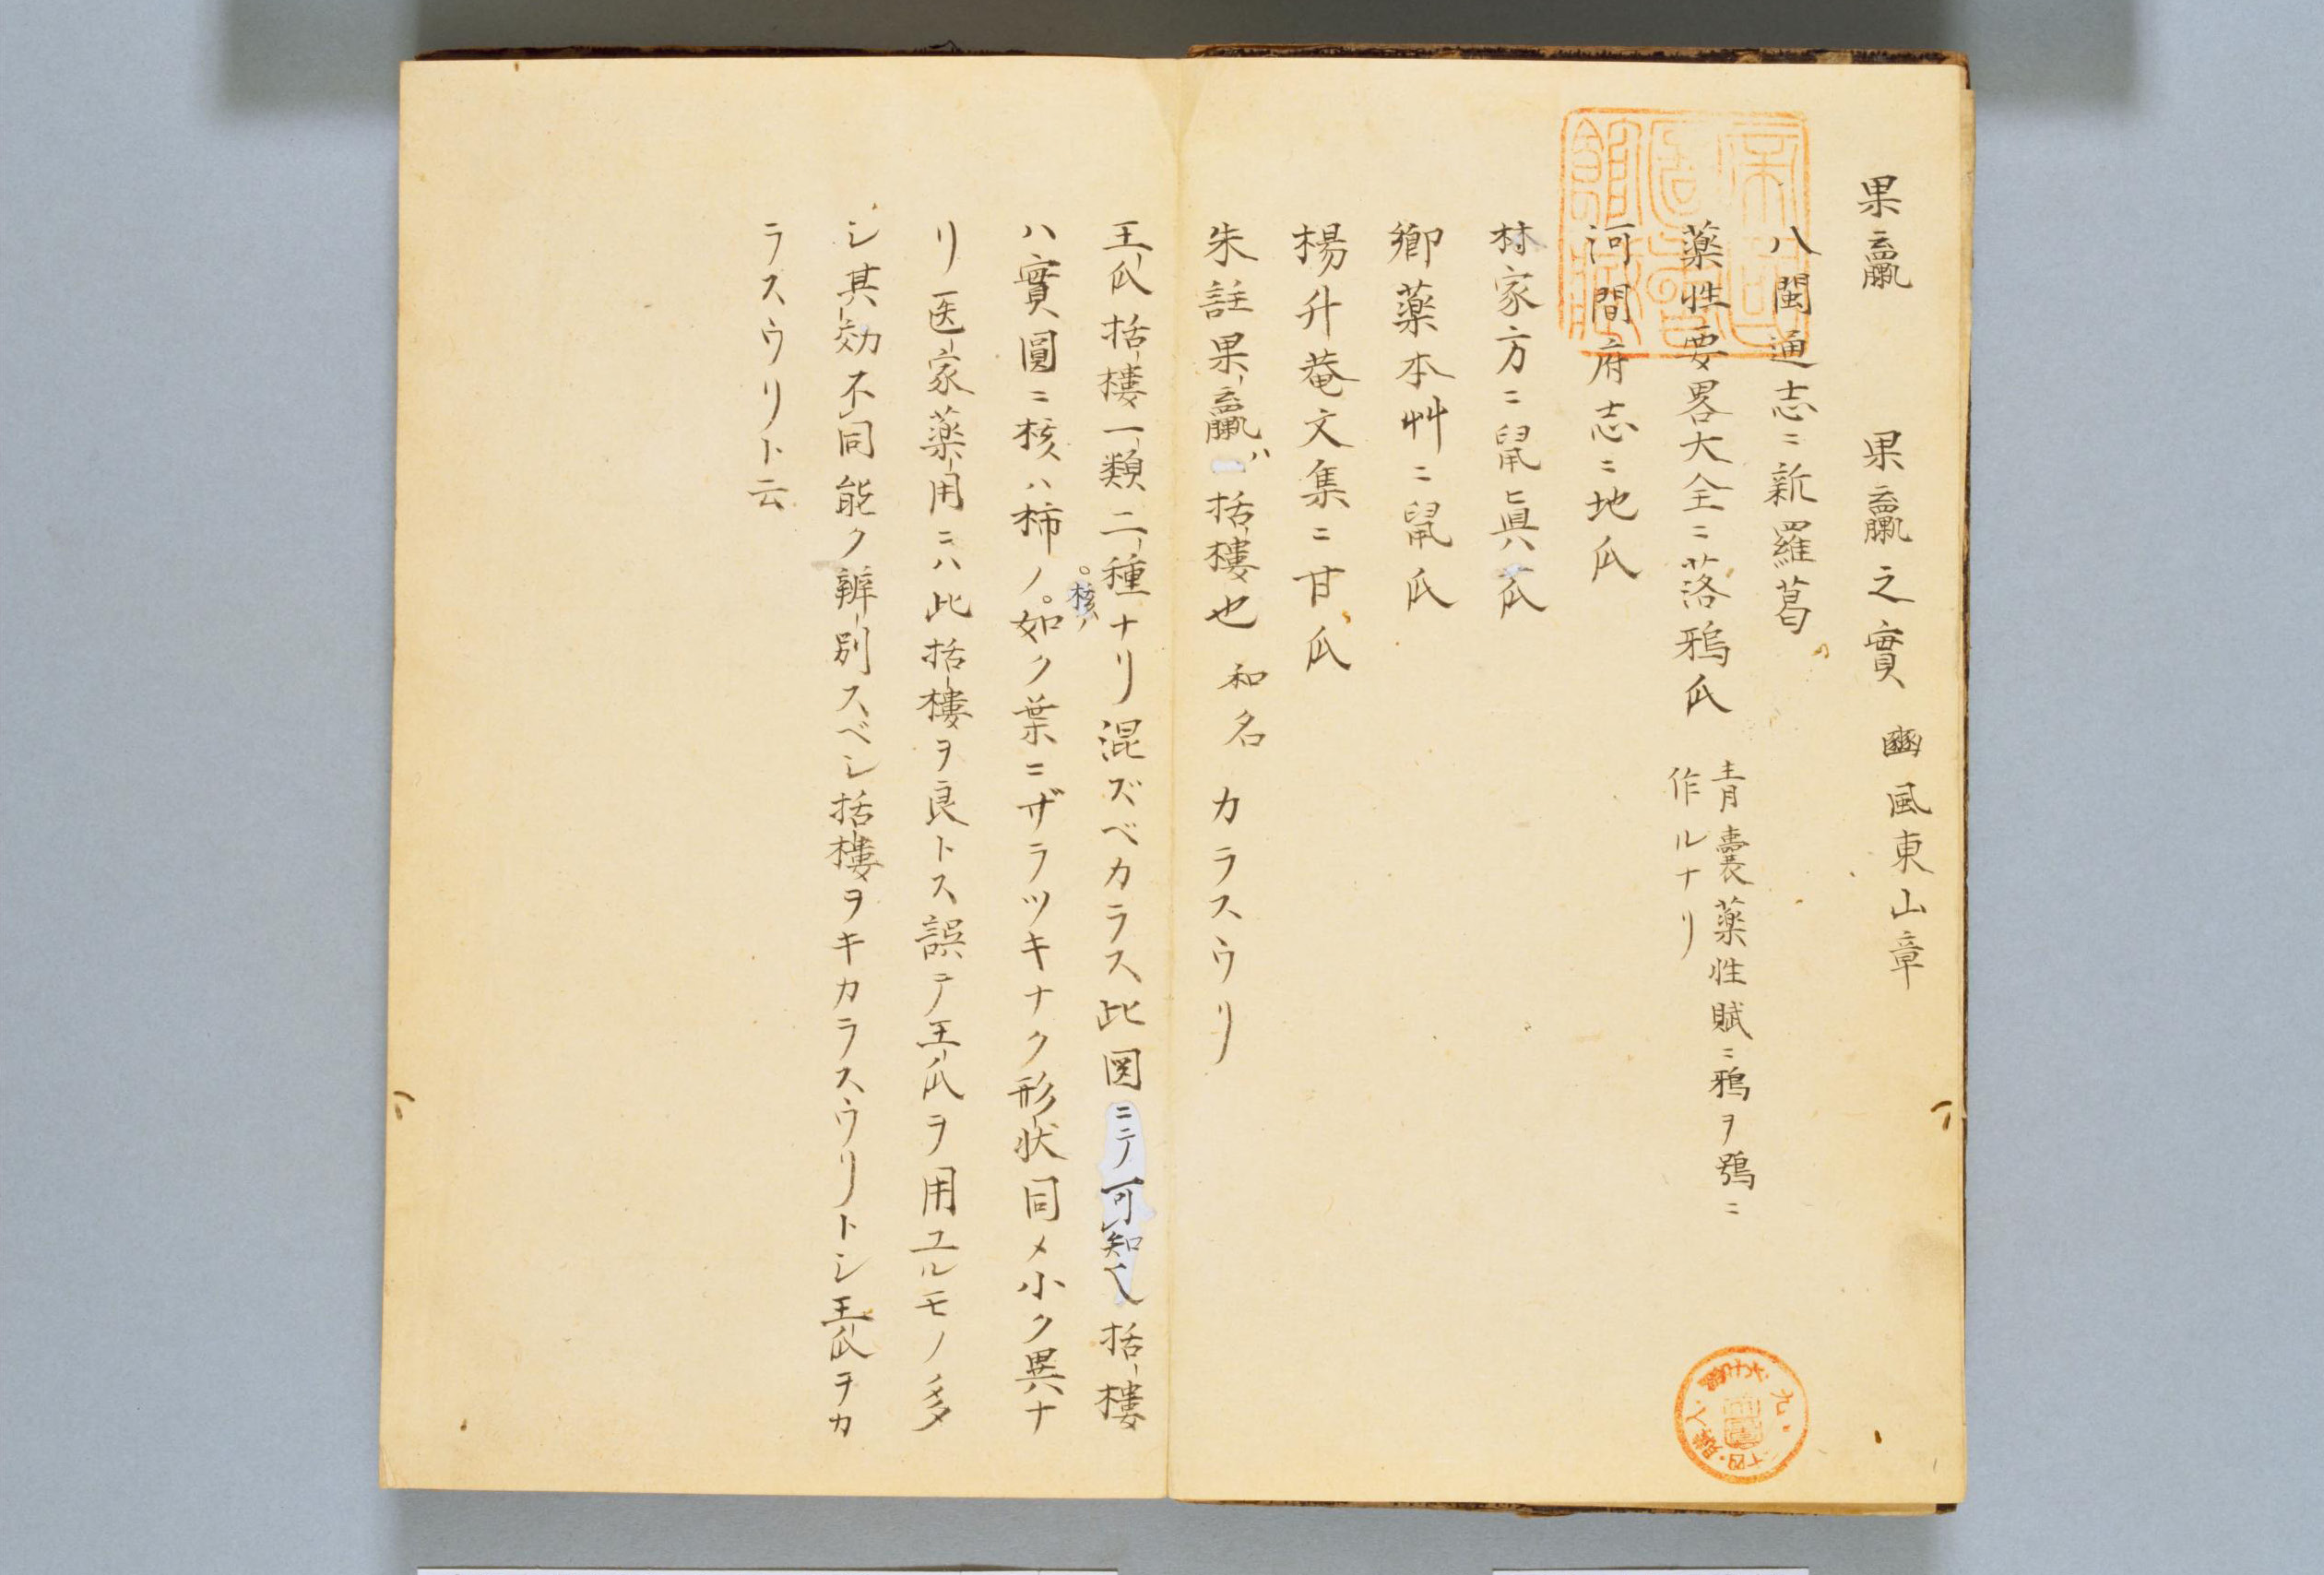 果臝　果臝之實　豳風東山章
八閩通志ニ新羅葛
薬性要畧大全ニ落鴉瓜　青囊薬性賦ニ鴉ヲ鵶ニ
作ルナリ
河間府志ニ地瓜
林家方ニ鼠真瓜
郷薬本艸ニ鼠瓜
楊升菴文集ニ甘瓜
朱註果臝ハ括樓也　和名カラスウリ
王瓜括樓一類二種ナリ混ズベカラス此図ニテ可知し括樓
ハ實圓ニ核ハ柿ノ核ノ如ク葉ニザラツキナク形状同メ小ク異ナ
リ医家薬用ニハ此括樓ヲ良トス誤テ王瓜ヲ用ユルモノ多
シ其効不同能ク辨別スベシ括樓ヲキカラスウリトシ王瓜ヲカ
ラスウリト云
帝国図書館蔵